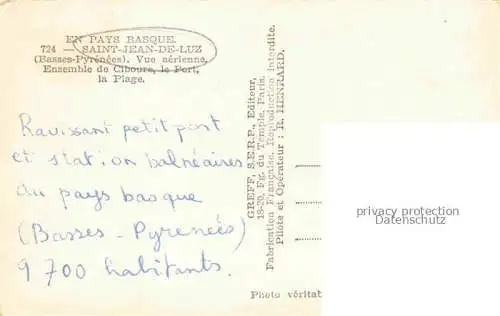 EN PAYS BASQUE.
724 — SAINT-JEAN-DE-LUZ
(Basses-Pyrénées). Vue aérienne.
Ensemble de Ciboure, le Port,
la Plage.
Ravissant petit port
et station balnéaires
du pays basque
(Basses - Pyrenées)
9 700 habitants.
GREFF, S.E.R.P., Editeur,
18-20, Fg. du Temple, Paris.
Fabrication Française. Reproduction interdite.
Pilote et Opérateur : R. HENRARD.
privacy protection
Datenschutz
Photo véritat